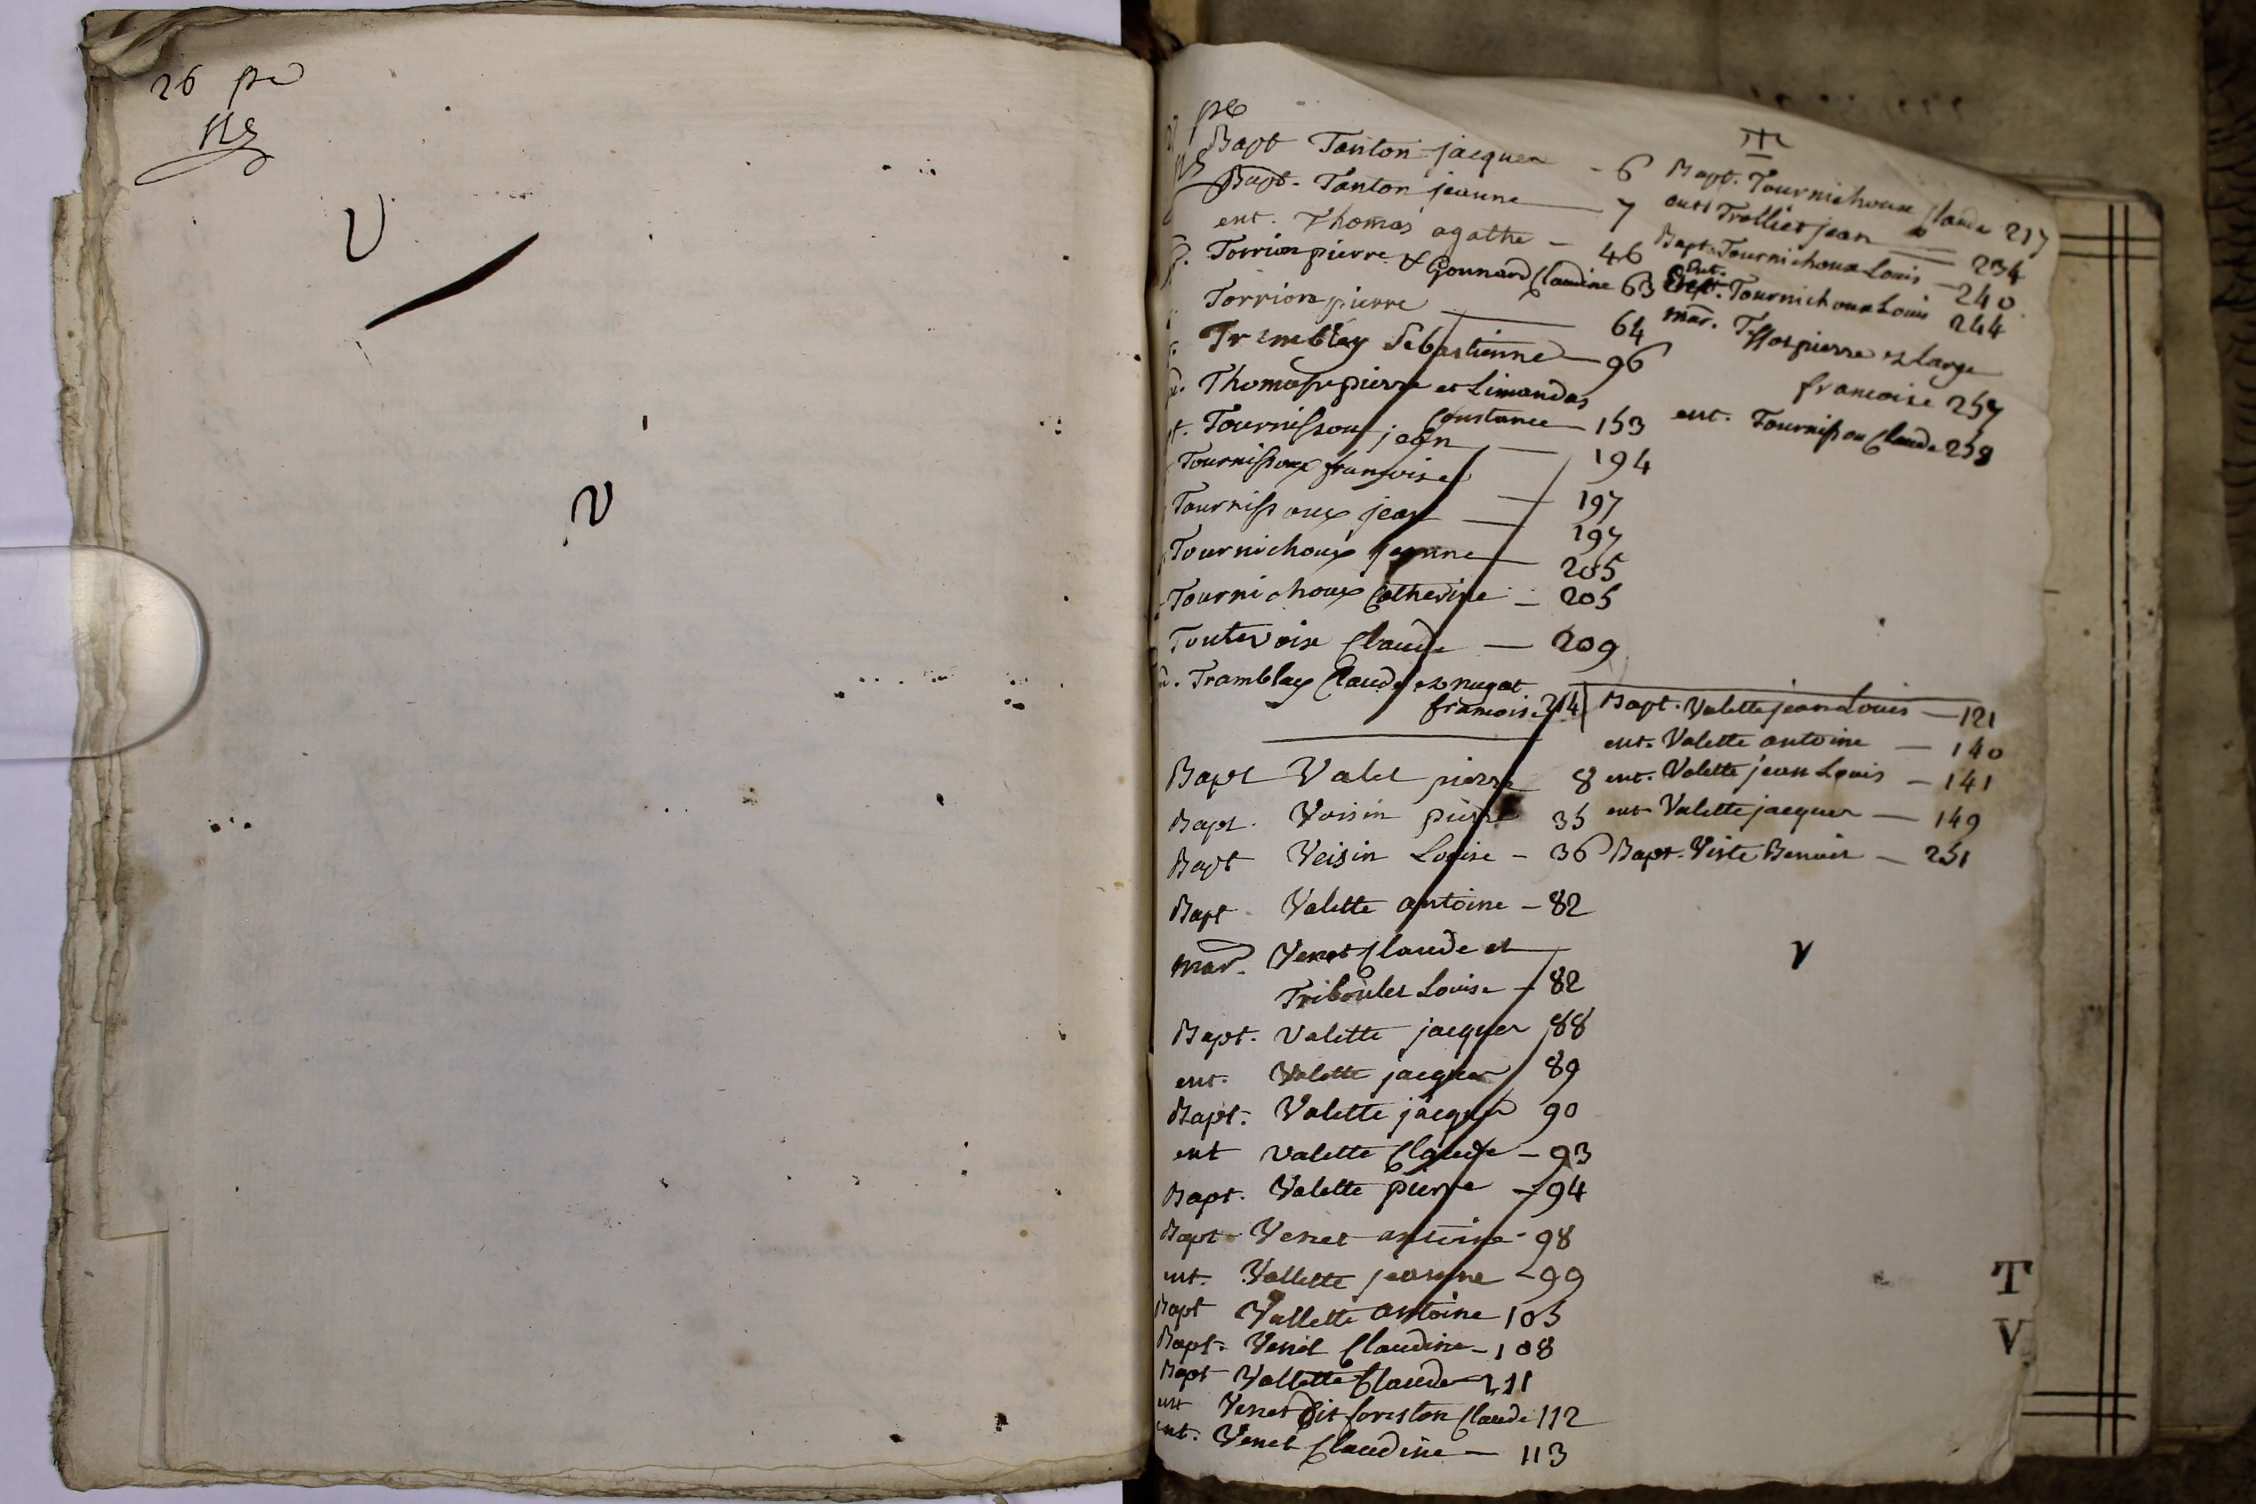 26
V
v
Bapt Tanton jacques - 6
Bapt. Tanton jeanne — 7
ent. Thomas agathe — 46
Torrion pierre & Gonnard Claudine 63
Torrion pierre — 64
Tremblay Sebastienne — 96
Thomasse pierre et Limandas
Constance — 153
Tournissoux jean — 194
Tournissoux francoise — 197
Tournissoux jean — 197
Tournichoux jeanne — 205
Tournichoux Catherine — 205
Toutevoix Claude — 209
Tramblay Claude et nugat
francoise 214
Bapt. Tournichoux Claude 217
ent. Trolliet jean — 234
Bapt. Tournichoux Louis — 240
ent. Tournichoux Louis 244
mar. Tissot pierre et Large
francoise 257
ent. Tournissou Claude 259
Bapt Valet pierre 8
Bapt. Voisin pierre 35
Bapt Veisin Louise - 36
Bapt Valette antoine — 82
mar. Venet Claude et
Triboulet Louise — 82
Bapt. Valette jacques 88
ent. Valette jacques 89
Bapt. Valette jacques 90
ent valette Claude — 93
Bapt. Valette pierre — 94
Bapt Venet antoine - 98
ent. Vallette jeanne - 99
Bapt Vallette antoine 105
Bapt. Venet Claudine - 108
Bapt Vallette Claude — 111
ent Venet dit foreston Claude 112
ent. Venet Claudine — 113
Bapt. Valette jean Louis — 121
ent. Valette antoine — 140
ent. Valette jean Louis — 141
ent Valette jacques — 149
Bapt. Viste Benoit — 251
v
T
V